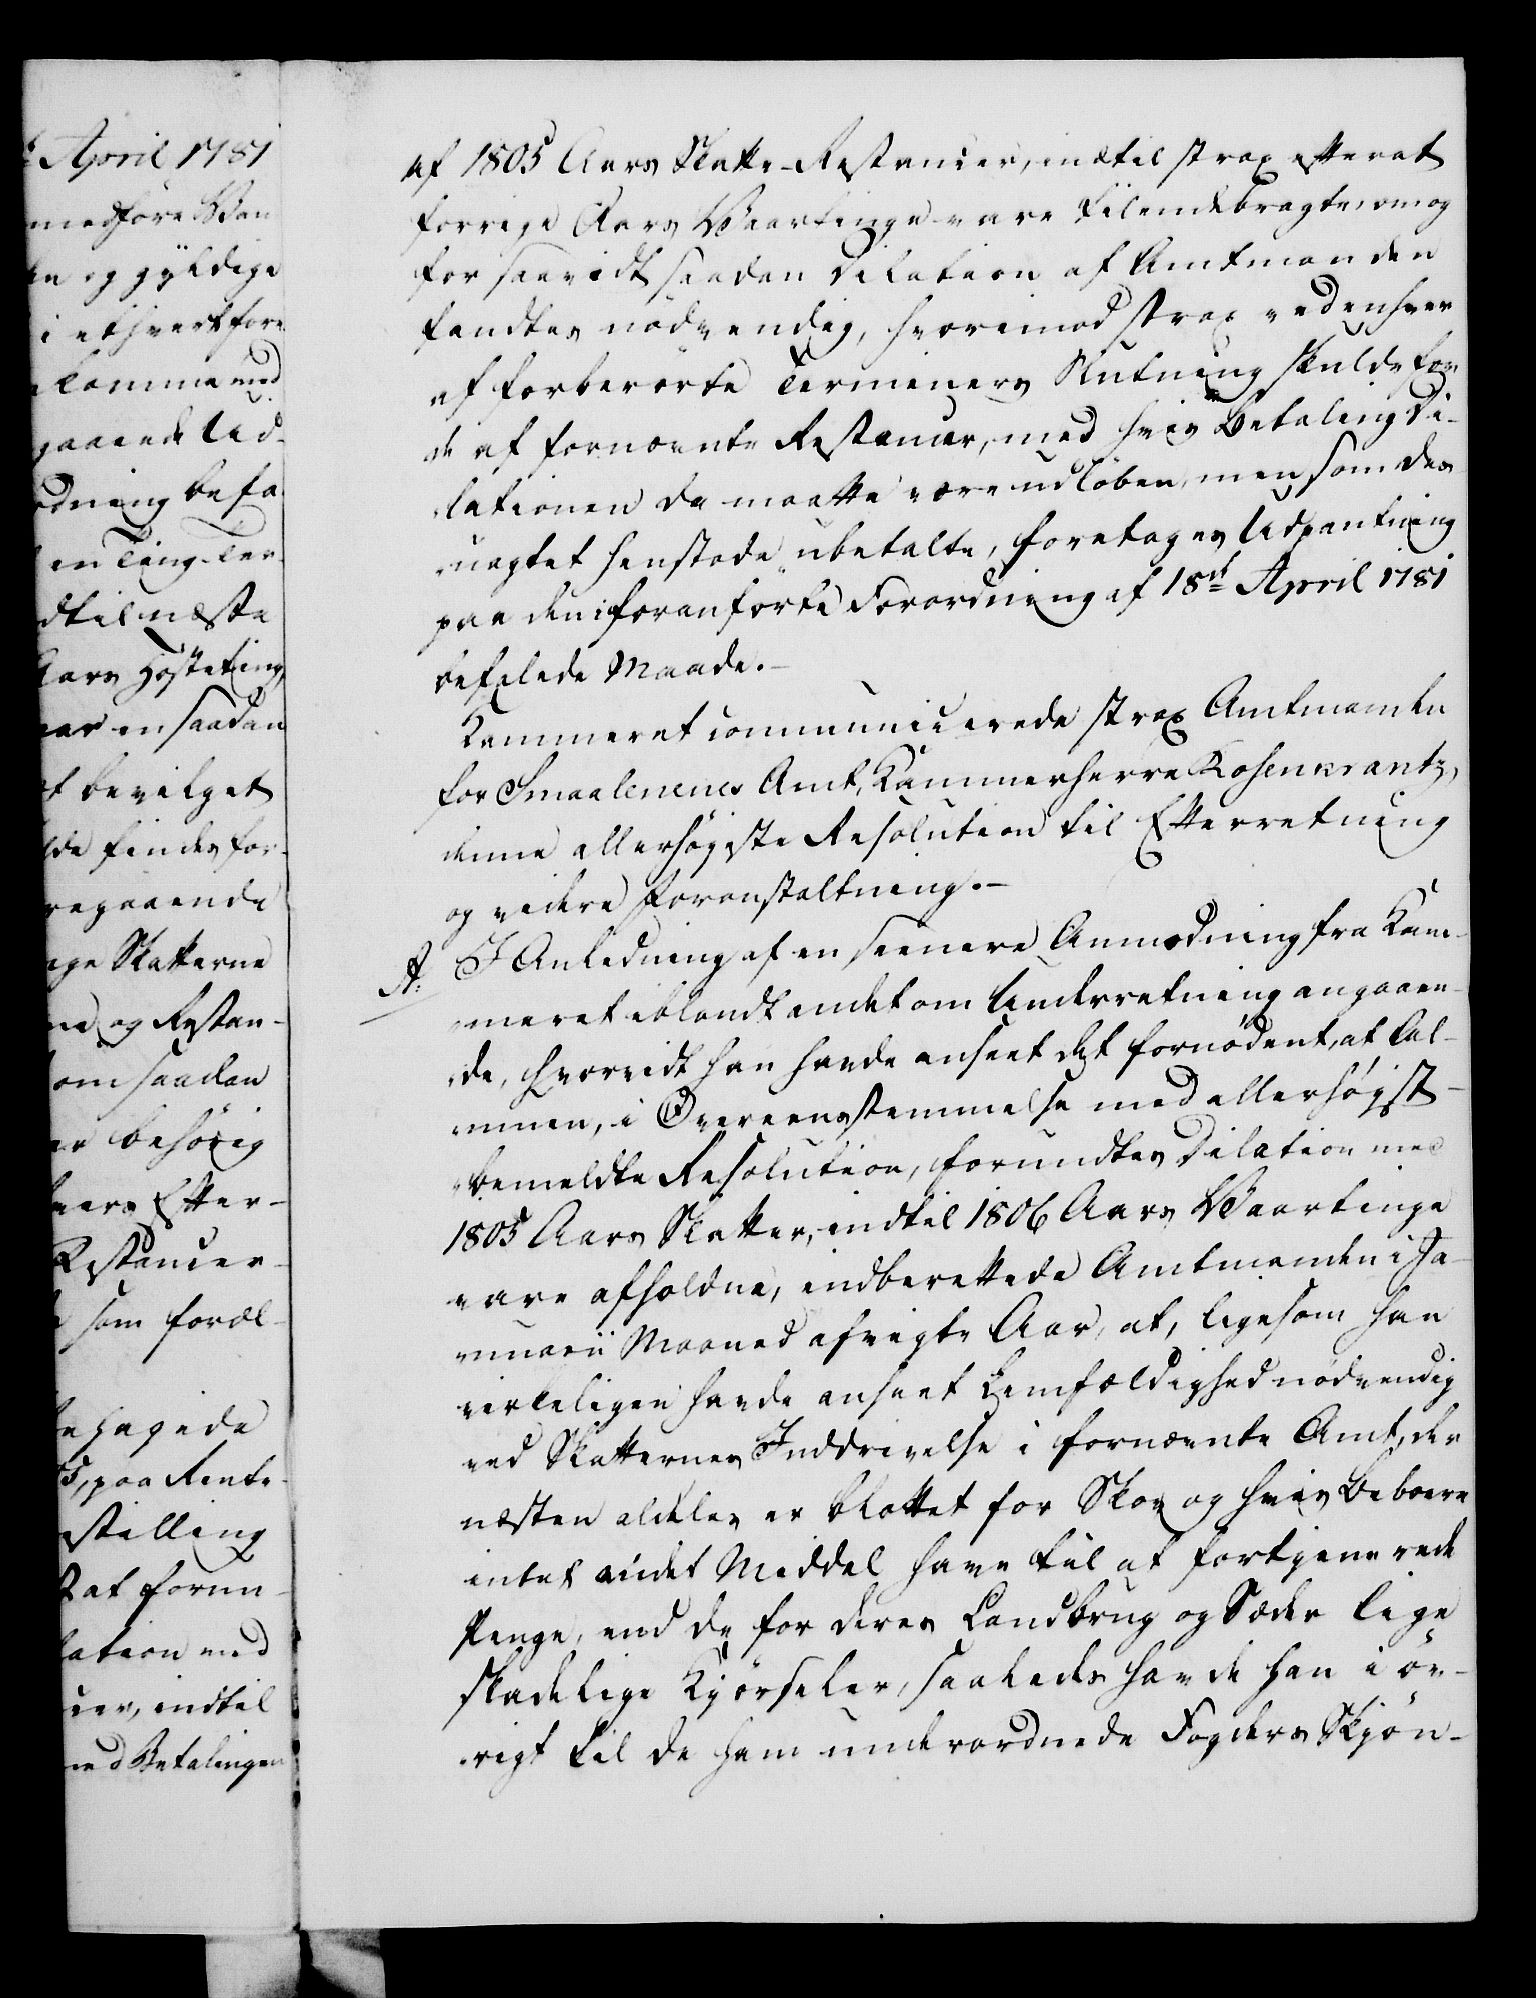 April 1781
medföre Van
en og gyldige
i ethvert fore
komme med
gaaende Ud-
dning befa
en Ting-Ter
dtil næste
Aars Høsteting,
ar en saadan
t bevilget
lde findes for-
regaaende
ige Skatterne
ne og Restan-
om saadan
er behørig
Aars Efter-
Restancer
som foræl-
behagede
paa Rente-
stilling
at forun-
lation med
cer, indtil
ed Betalingen
af 1805 Aars Skatte-Restancer, indtil strax efterat
forrige Aars Vaartinge vare tilendebragte, om og
forsaavidt saadan Dilation af Amtmanden
fandtes nödvendig, hvorimod strax ved enhver
af forberörte Terminers Slutning skulde for
de af fornævnte Restancer, med hvis Betaling Di-
lationen da maatte være udløben, men som des-
uagtet henstode ubetalte, foretages Udpantning
paa den i foranförte Forordning af 18de April 1781
befalede Maade.-
Kammeret communicerede strax Amtmanden
for Smaalenenes Amt, Kammerherre Rosenkrantz,
denne allerhøgste Resolution til Efterretning
og videre Foranstaltning.-
A: I Anledning af en seenere Anmodning fra Kam-
meret iblandt andet om Underretning angaaen-
de, hvorvidt han havde anseet det fornödent, at Al-
muen, i Overeensstemmelse med allerhøgst-
bemeldte Resolution, forundtes Dilation med
1805 Aars Skatter, indtil 1806 Aars Vaartinge
vare afholdne, indberettede Amtmanden i Ja-
nuarii Maaned afvigte Aar, at, ligesom han
virkeligen havde anseet Lemfældighed nödvendig
ved Skatternes Inddrivelse i fornævnte Amt, der
næsten aldeles er blottet for Skov og hvis Beboere
intet andet Middel have til at fortjene rede
Penge, end de for deres Landbrug og Sæder lige
skadelige Kjörseler, saaledes havde han i öv-
rigt til de ham underordnede Fogders Skjön-